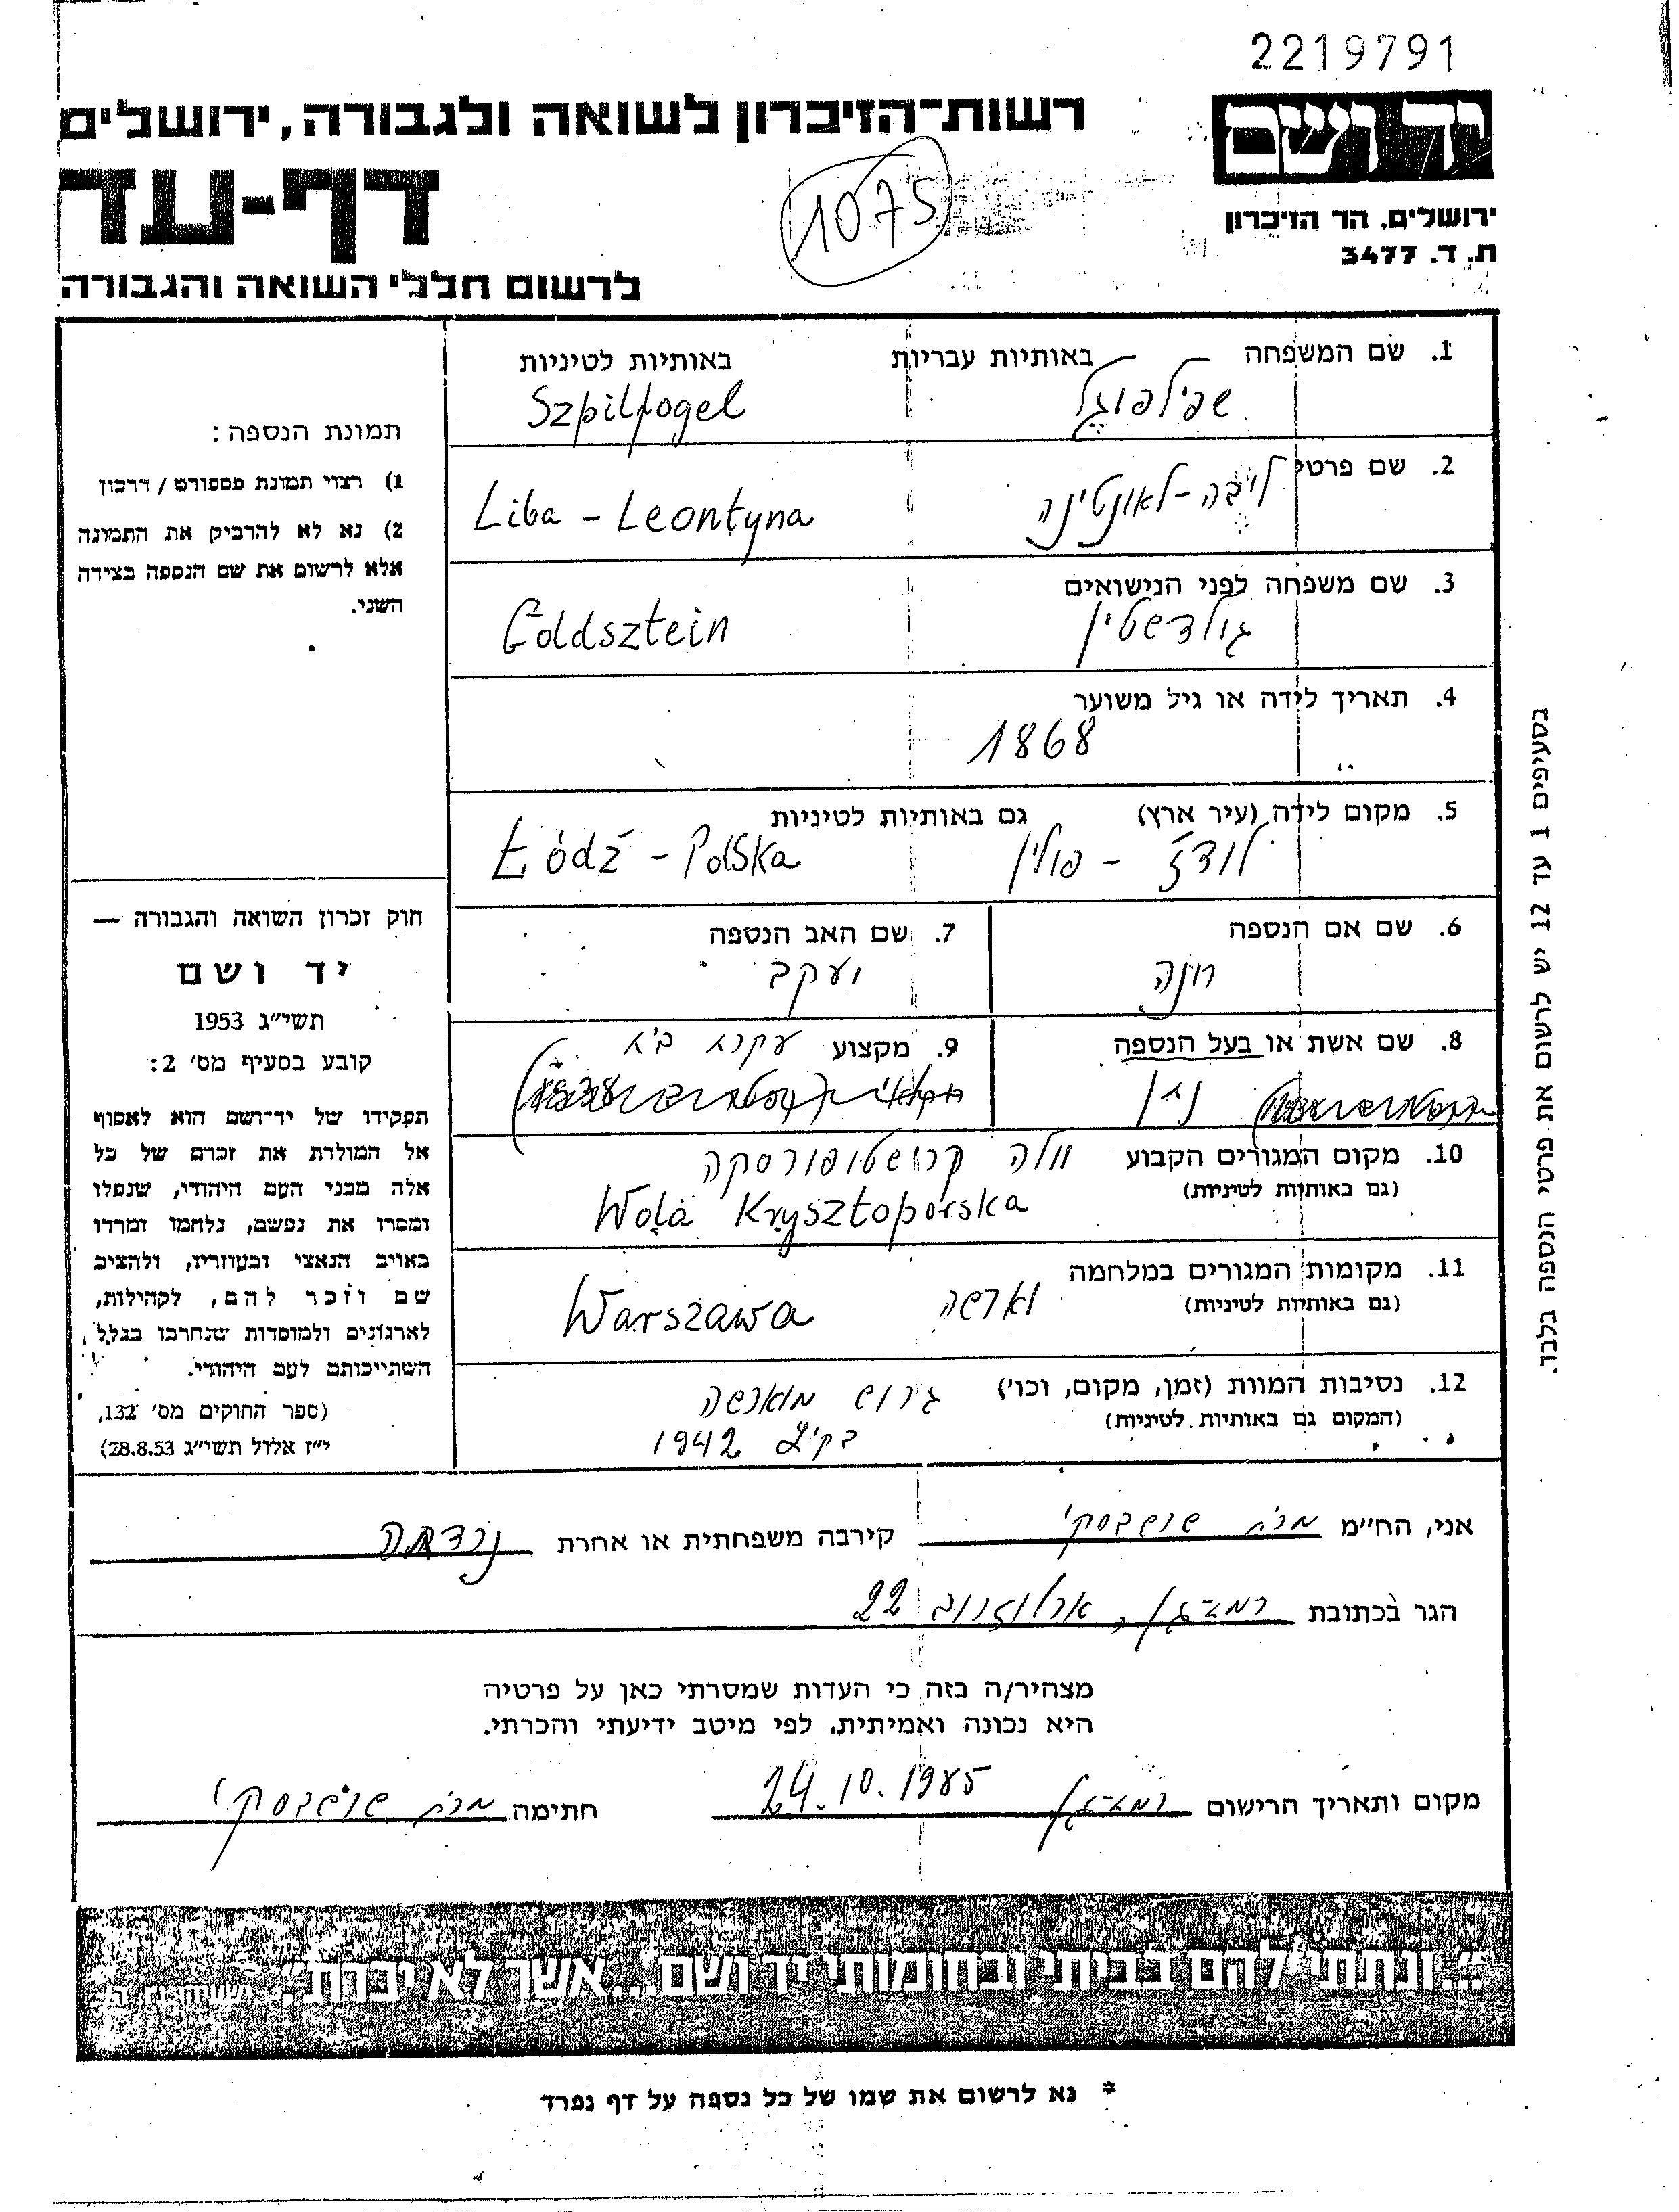 2219791
יד ושם
רשות־הזיכרון לשואה ולגבורה, ירושלים
דף-עד
1075
ירושלים, הר הזיכרון
ת. ד. 3477
לרשום חללי השואה והגבורה
1. שם המשפחה באותיות עבריות באותיות לטיניות
שפילפוגל Szpilfogel
2. שם פרטי
ליבה-לאונטינה Liba - Leontyna
3. שם משפחה לפני הנישואים
גולדשטין Goldsztein
4. תאריך לידה או גיל משוער
1868
5. מקום לידה (עיר ארץ) גם באותיות לטיניות
לודז' - פולין Łódź - Polska
6. שם אם הנספה
חנה
7. שם האב הנספה
יעקב
8. שם אשת או בעל הנספה
9. מקצוע עקרת בית
10. מקום המגורים הקבוע
(גם באותיות לטיניות)
וולה קרישטופורסקה
Wola Krysztoporska
11. מקומות המגורים במלחמה
(גם באותיות לטיניות)
וארשה Warszawa
12. נסיבות המוות (זמן, מקום, וכו')
(המקום גם באותיות לטיניות)
גירוש מוארשה
בקיץ 1942
תמונת הנספה:
1) רצוי תמונת פספורט / דרכון
2) נא לא להדביק את התמונה
אלא לרשום את שם הנספה בצידה
השני.
חוק זכרון השואה והגבורה —
יד ושם
תשי״ג 1953
קובע בסעיף מס׳ 2:
תפקידו של יד־ושם הוא לאסוף
אל המולדת את זכרם של כל
אלה מבני העם היהודי, שנפלו
ומסרו את נפשם, נלחמו ומרדו
באויב הנאצי ובעוזריו, ולהציב
שם וזכר להם, לקהילות,
לארגונים ולמוסדות שנחרבו בגלל
השתייכותם לעם היהודי.
(ספר החוקים מס׳ 132,
י״ז אלול תשי״ג 28.8.53)
בסעיפים 1 עד 12 יש לרשום את פרטי הנספה בלבד.
אני, הח״מ קירבה משפחתית או אחרת נכדתה
הגר בכתובת רמת-גן, ארלוזורוב 22
מצהיר/ה בזה כי העדות שמסרתי כאן על פרטיה
היא נכונה ואמיתית, לפי מיטב ידיעתי והכרתי.
מקום ותאריך הרישום רמת-גן 24.10.1985 חתימה
״..ונתתי להם בביתי ובחומותי יד ושם...אשר לא יכרת״
* נא לרשום את שמו של כל נספה על דף נפרד